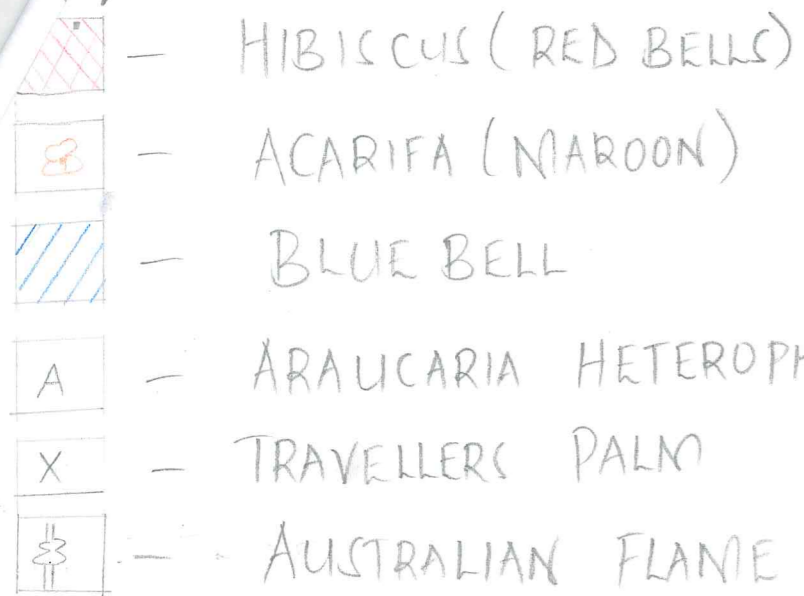 — HIBISCUS (RED BELLS)
— ACARIFA (MAROON)
— BLUE BELL
A — ARAUCARIA HETEROPH
X — TRAVELLERS PALM
— AUSTRALIAN FLAME